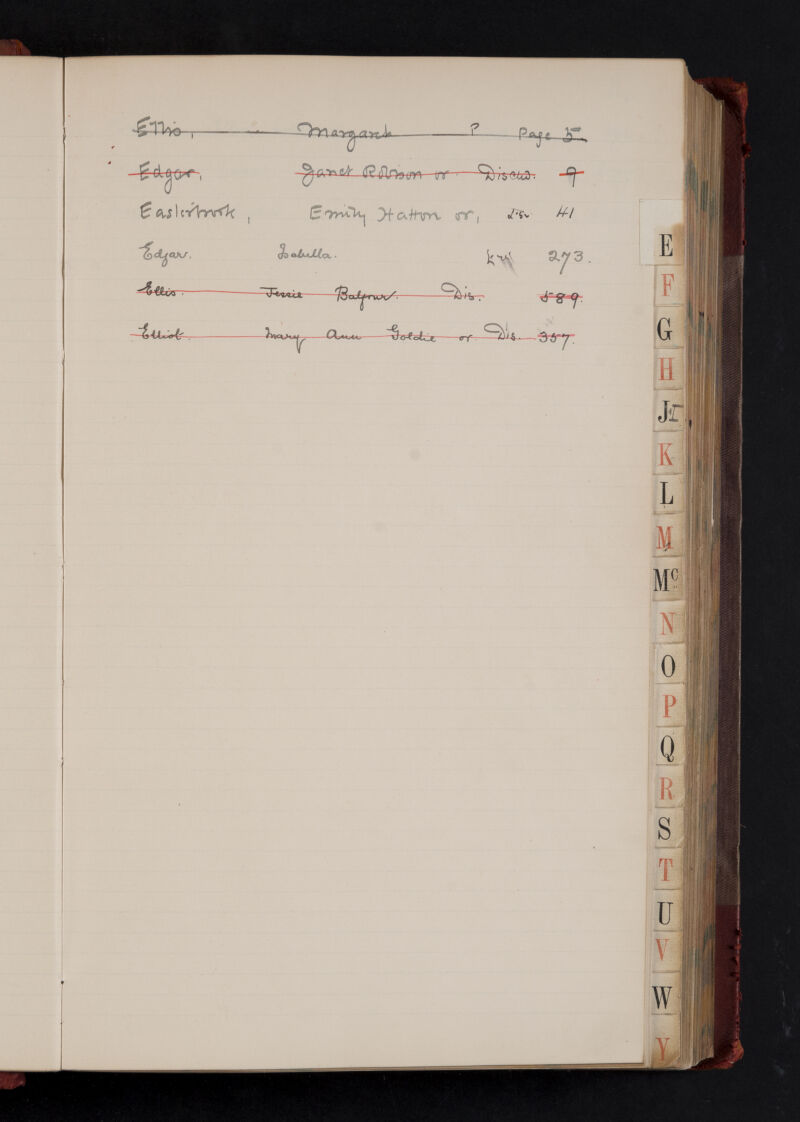 Ellis, Margaret P Page 5
Edgar, Janet Robson or Dischd. 9
Easterbrook, Emily Hatton or, dis 41
Edgar. Isabella. 273.
Ellis. Jessie Balfour. Dis. 589.
Elliot. Mary Ann Goldie or Dis. 357.
E
F
G
H
J
K
L
M
Mc
N
O
P
Q
R
S
T
U
V
W
Y